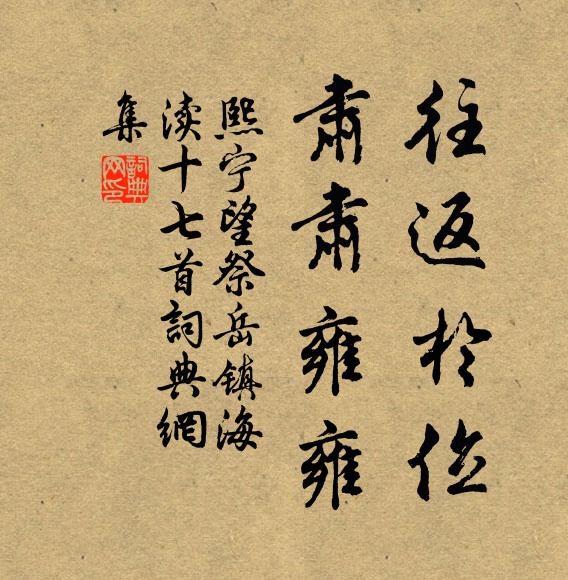 往返於位
肅肅雍雍
熙宁望祭岳鎮海
渎十七首詞典網
集
詞典
网印